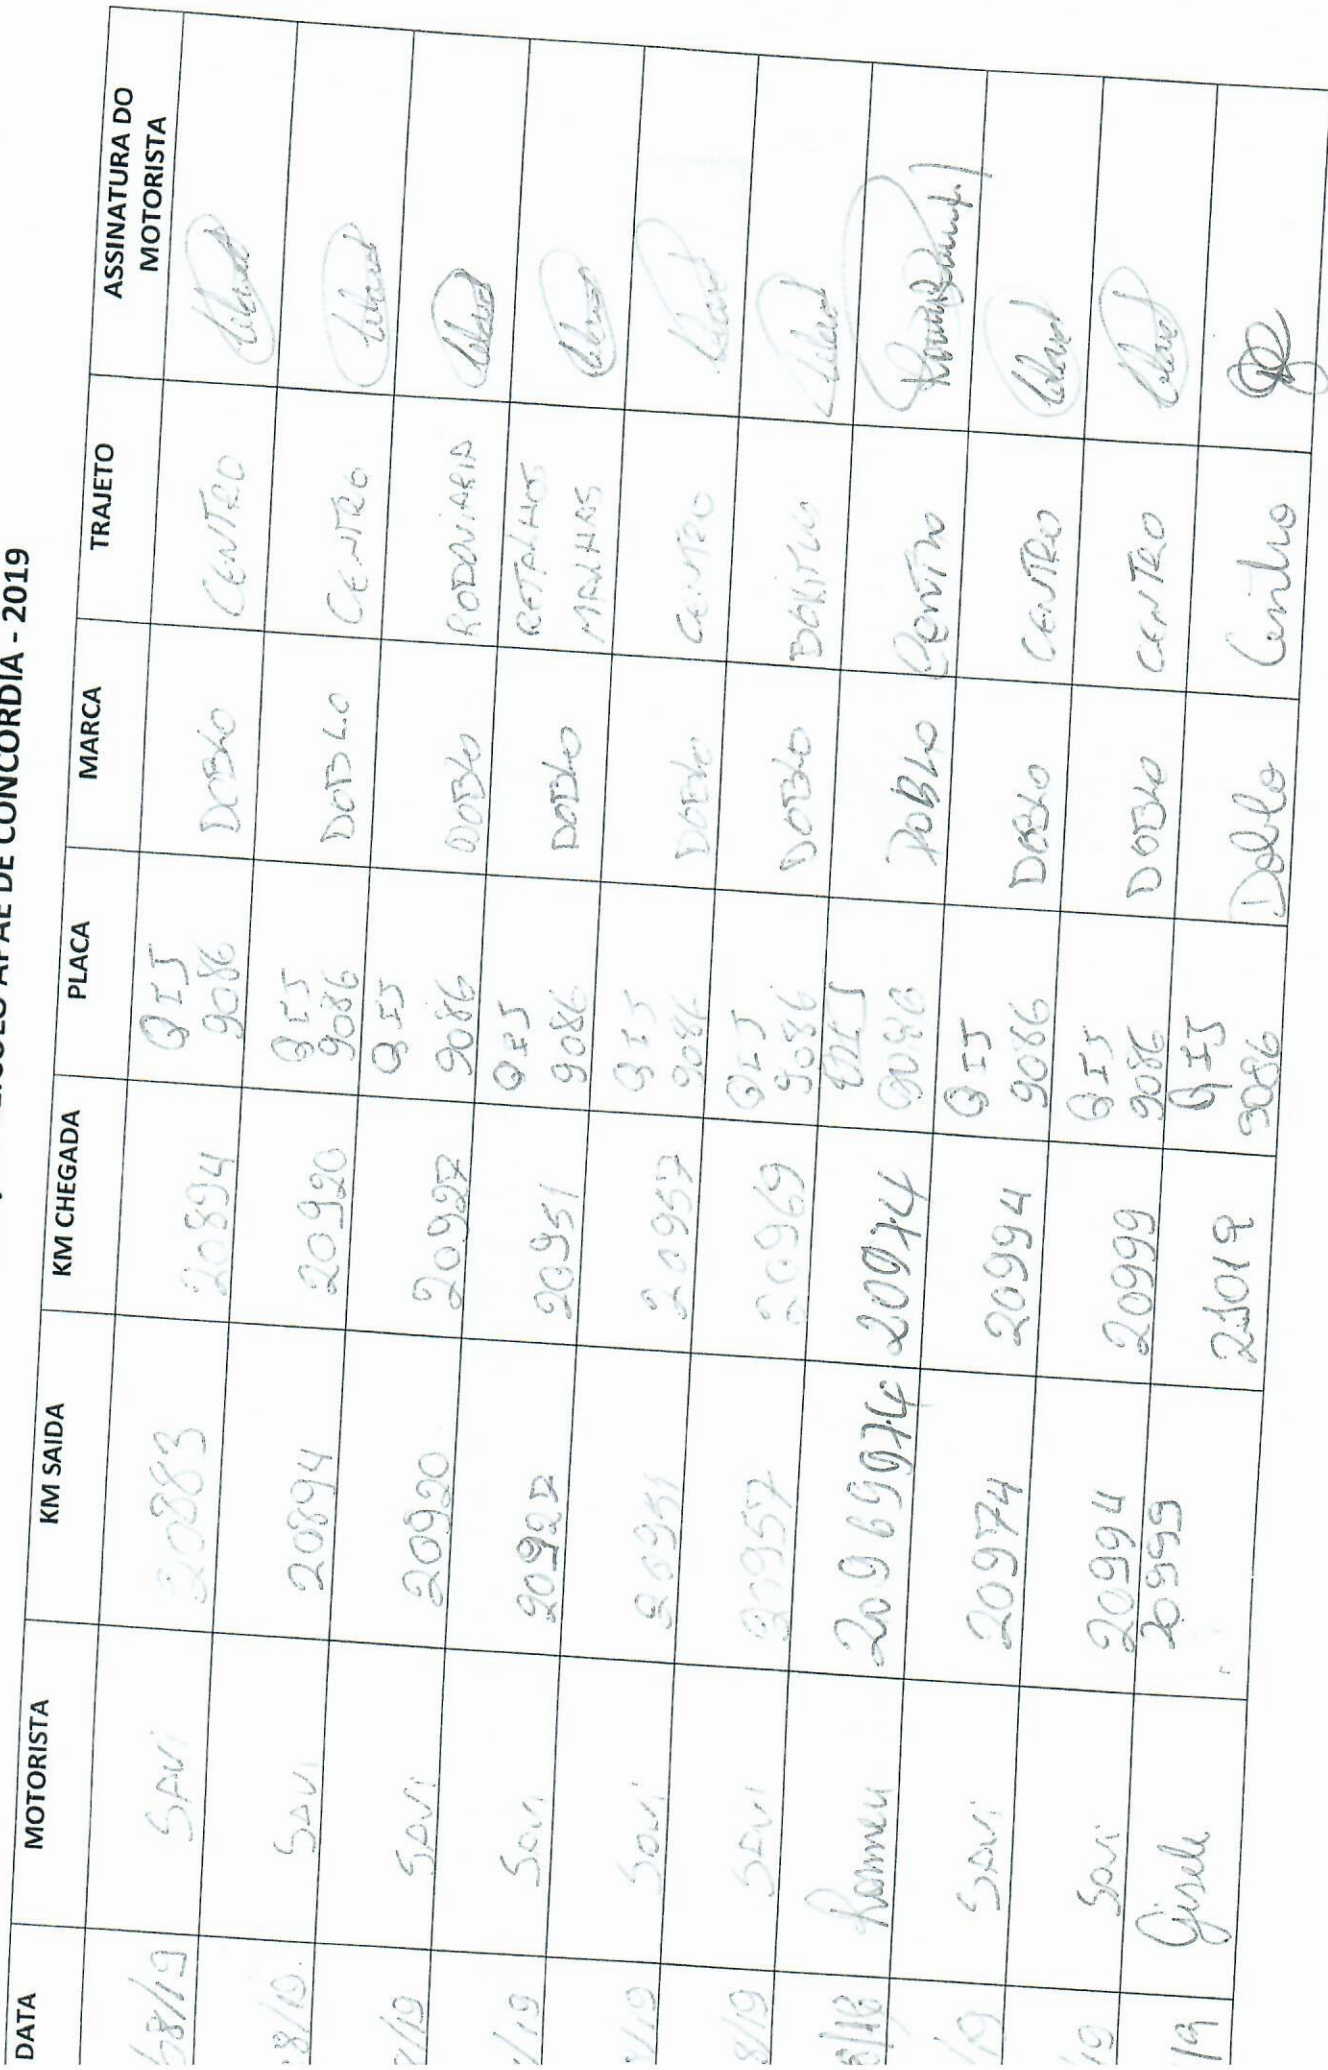 APAE DE CONCORDIA - 2019
DATA MOTORISTA KM SAIDA KM CHEGADA PLACA MARCA TRAJETO ASSINATURA DO MOTORISTA
8/19 SAVI 20883 20894 QIJ 9086 DOBLO CENTRO
8/19 SAVI 20894 20920 QIJ 9086 DOBLO CENTRO
/19 SAVI 20920 20927 QIJ 9086 DOBLO
/19 SAVI 20927 20951 QIJ 9086 DOBLO RETALHOS MALHAS
/19 SAVI 20951 20957 QIJ 9086 DOBLO CENTRO
8/19 SAVI 20957 20969 QIJ 9086 DOBLO
Romeu 20969 974 20974 QIJ 9086 DOBLO Centro
/19 SAVI 20974 20994 QIJ 9086 DOBLO CENTRO
19 SAVI 20994 20999 QIJ 9086 DOBLO CENTRO
19 Gisele 20999 21019 QIJ 9086 Doblo Centro